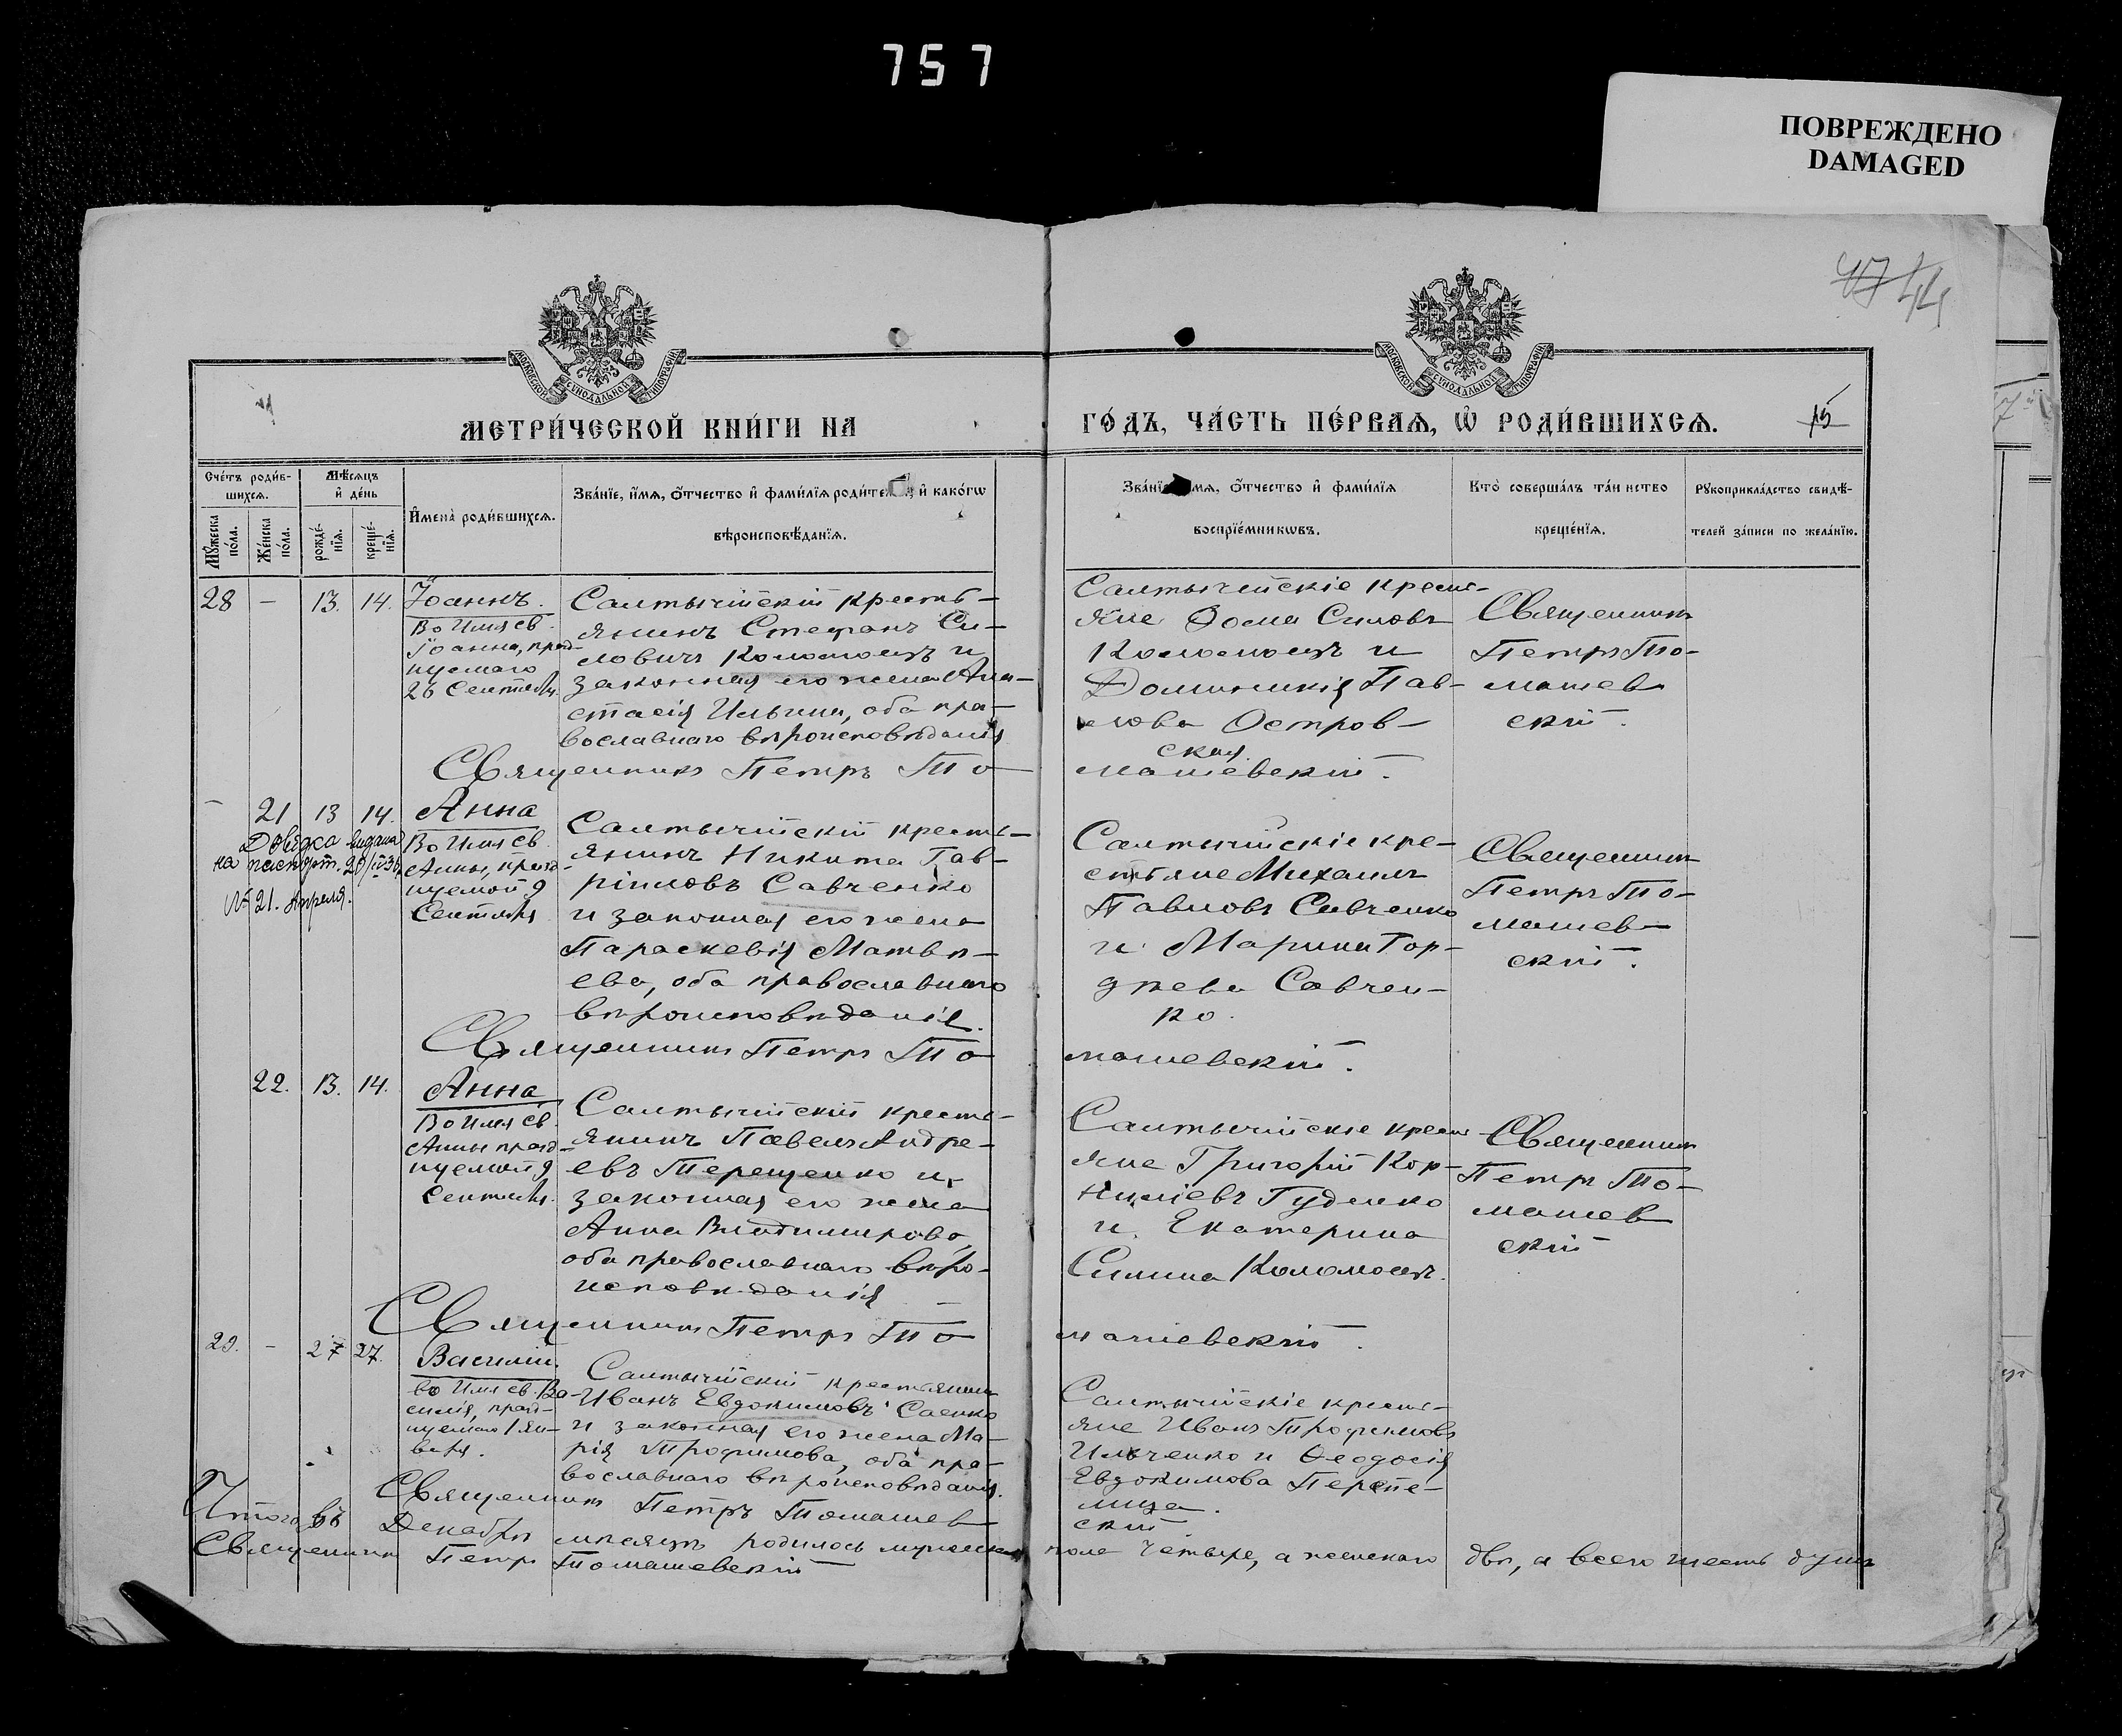 757
ПОВРЕЖДЕНО
DAMAGED
47 44
МОСКОВСКОЙ СУНОДАЛЬНОЙ ТИПОГРАФІИ
МОСКОВСКОЙ СУНОДАЛЬНОЙ ТИПОГРАФІИ
МЕТРИ́ЧЕСКОЙ КНИ́ГИ НА
ГО́ДЪ, ЧА́СТЬ ПЕ́РВАѦ, Ѡ҆ РОДИ́ВШИХСѦ.
15
Сче́тъ роди́в-
шихсѧ.
Мꙋ́жеска по́ла.
Же́нска по́ла.
Мѣ́сѧцъ
и҆ де́нь
рожде́-
нїѧ.
креще́-
нїѧ.
И҆мена̀ роди́вшихсѧ.
Зва́нїе, и҆́мѧ, ѻ҆́тчество и҆ фами́лїѧ роди́телей, и҆ како́гѡ
вѣроисповѣ́данїѧ.
Зва́нїе, и҆́мѧ, ѻ҆́тчество и҆ фами́лїѧ
воспрїе́мникѡвъ.
Кто̀ соверша́лъ та́инство
креще́нїѧ.
Рꙋкоприкла́дство свидѣ́-
телей за́писи по жела́нїю.
28
–
13.
14.
Іоаннъ.
Во имя св.
Іоанна, празд-
нуемаго
26 Сентяб.
Салтычійскій кресть-
янинъ Стефанъ Си-
ловичъ Коломоецъ и
законная его жена Ана-
стасія Ильина, оба пра-
вославнаго вѣроисповѣданія
Салтычійскіе кресть-
яне Фома Силовъ
Коломоецъ и
Доминикія Пав-
лова Остров-
ская.
Священникъ
Петръ То-
машев-
скій.
Священникъ Петръ То-
машевскій.
–
21
13
14.
Довідка видана
на паспорт. 20/
№ 21. Апреля.
Анна
Во имя св.
Анны, празд-
нуемой 9
Сентября
Салтычійскій кресть-
янинъ Никита Гав-
ріиловъ Савченко
и законная его жена
Параскевія Матвѣ-
ева, оба православнаго
вѣроисповѣданія.
Салтычійскіе кре-
стьяне Михаилъ
Павловъ Савченко
и Марина Гор-
дѣева Савчен-
ко.
Священникъ
Петръ То-
машев-
скій.
Священникъ Петръ То-
машевскій.
22.
13.
14.
Анна
Во имя св.
Анны празд-
нуемой 9
Сентяб.
Салтычійскій кресть-
янинъ Павелъ Андре-
евъ Терещенко и
законная его жена
Анна Владимірова,
оба православнаго вѣро-
исповѣданія
Салтычійскіе кресть-
яне Григорій Кор-
ниліевъ Гуденко
и Екатерина
Силина Коломоецъ.
Священникъ
Петръ То-
машев-
скій
Священникъ Петръ То-
машевскій.
29.
–
27
27.
Василій.
Во имя св. Ва-
силія, празд-
нуемаго 1 Ян-
варя.
Салтычійскій крестьянинъ
Иванъ Евдокимовъ Саенко
и законная его жена Ма-
рія Трофимова, оба пра-
вославнаго вѣроисповѣданія.
Салтычійскіе кресть-
яне Иванъ Трофимовъ
Ильченко и Ѳеодосія
Евдокимова Перепе-
лица.
Священникъ Петръ Томашев-
скій.
Итого въ Декабрѣ мѣсяцѣ родилось мужеска пола четыре, а женскаго двѣ, а всего шесть душъ
Священникъ Петръ Томашевскій